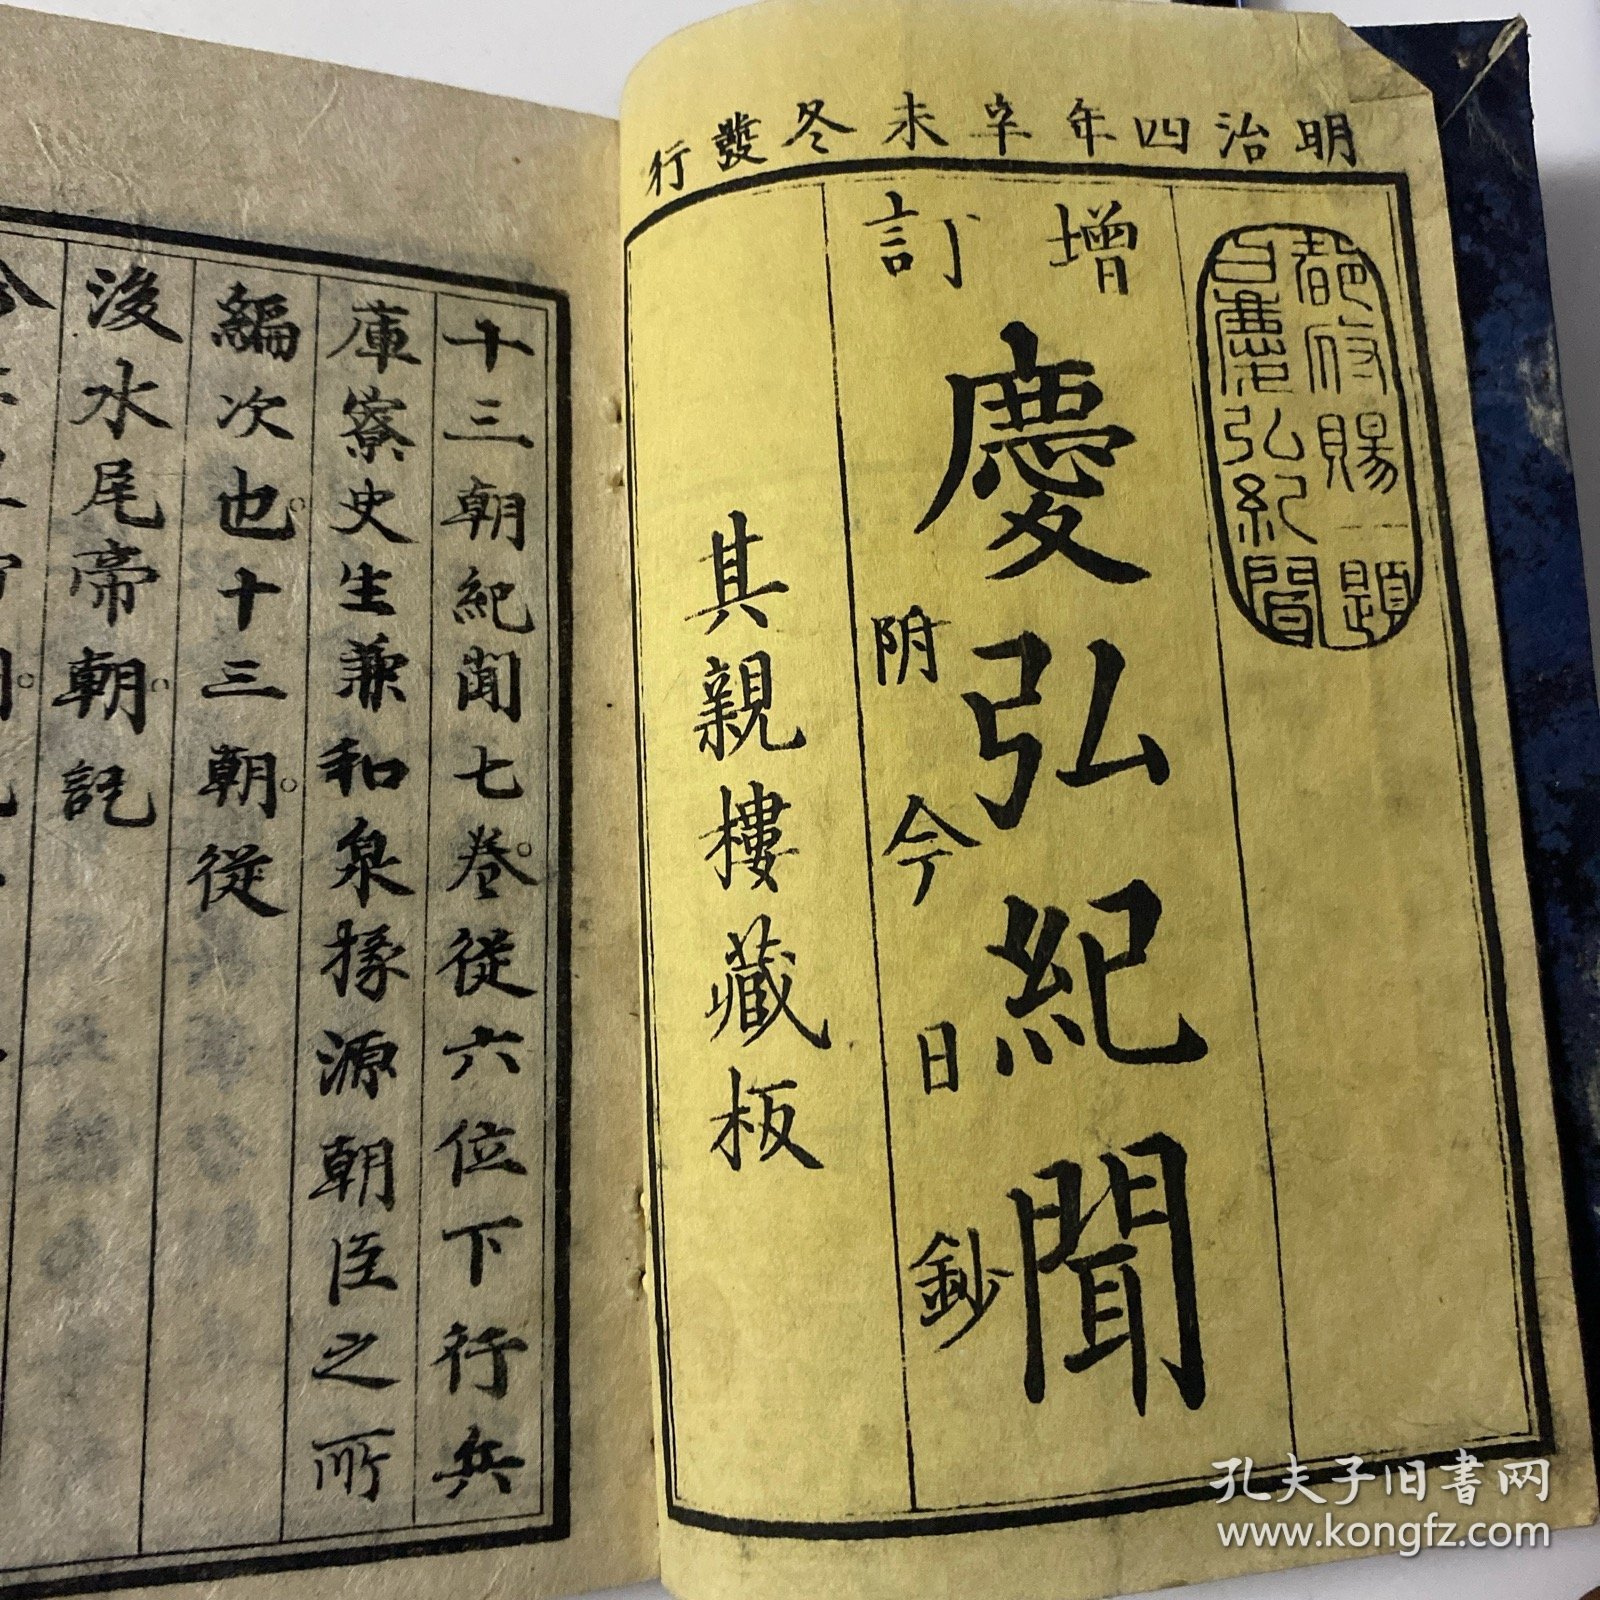 明治四年辛未冬發行
都府賜一題
曰慶弘紀聞
增訂
慶弘紀聞
附今日鈔
其親樓藏板
十三朝紀聞七卷從六位下行兵
庫寮史生兼和泉掾源朝臣之所
編次也十三朝從
後水尾帝朝訖
孔夫子旧書网
www.kongfz.com